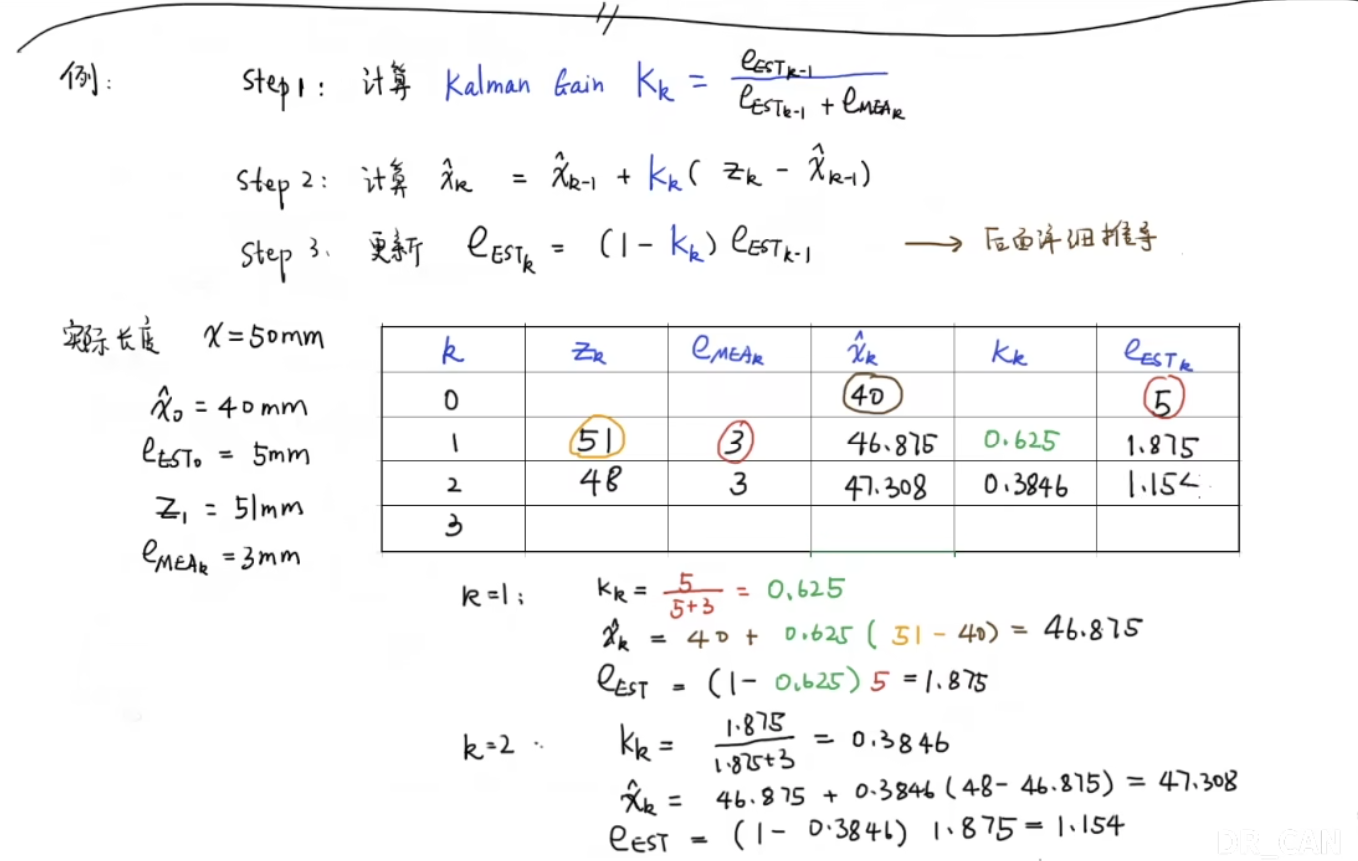 例:
Step1: 计算 Kalman Gain Kₖ = e_ESTₖ₋₁ / (e_ESTₖ₋₁ + e_MEAₖ)
Step 2: 计算 x̂ₖ = x̂ₖ₋₁ + kₖ( zₖ - x̂ₖ₋₁)
Step 3. 更新 e_ESTₖ = (1 - kₖ) e_ESTₖ₋₁ → 后面详细推导
实际长度 x = 50mm
x̂₀ = 40mm
e_EST₀ = 5mm
z₁ = 51mm
e_MEAₖ = 3mm
k zₖ e_MEAₖ x̂ₖ kₖ e_ESTₖ
0 40 5
1 51 3 46.875 0.625 1.875
2 48 3 47.308 0.3846 1.154
3
k=1: kₖ = 5 / (5+3) = 0.625
x̂ₖ = 40 + 0.625 ( 51 - 40) = 46.875
e_EST = (1 - 0.625) 5 = 1.875
k=2 : kₖ = 1.875 / (1.875+3) = 0.3846
x̂ₖ = 46.875 + 0.3846 (48 - 46.875) = 47.308
e_EST = (1 - 0.3846) 1.875 = 1.154
DR_CAN